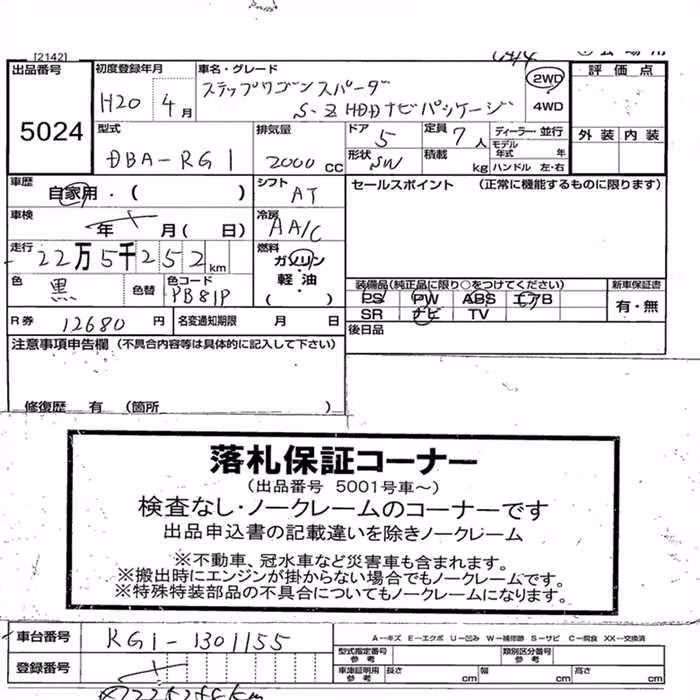 [2142]
出品番号 5024
初度登録年月 H20 4月
車名・グレード ステップワゴンスパーダ
S-Z HDDナビパッケージ
2WD
4WD
評価点
外装 内装
型式 DBA-RG1
排気量 2000 CC
ドア 5
定員 7人
形状 SW
積載 kg
ディーラー・並行
モデル年式 年
ハンドル 左・右
車歴 自家用・( )
シフト AT
セールスポイント (正常に機能するものに限ります)
車検 年 月( 日)
冷房 AA/C
走行 22万5千252km
燃料 ガソリン
軽油
( )
色 黒 色替 色コード PB81P
装備品(純正品に限り○をつけてください)
PS PW ABS エアB
SR ナビ TV
新車保証書
有・無
R券 12680円 名変通知期限 月 日
後日品
注意事項申告欄 (不具合内容等は具体的に記入して下さい)
修復歴 有 (箇所 )
落札保証コーナー
(出品番号 5001号車～)
検査なし・ノークレームのコーナーです
出品申込書の記載違いを除きノークレーム
※不動車、冠水車など災害車も含まれます。
※搬出時にエンジンが掛からない場合でもノークレームです。
※特殊特装部品の不具合についてもノークレームになります。
車台番号 RG1-1301155
A－キズ E－エクボ U－凹み W－補修跡 S－サビ C－腐食 XX－交換済
型式指定番号 参考
類別区分番号 参考
登録番号
車庫証明用 参考 長さ cm 幅 cm 高さ cm